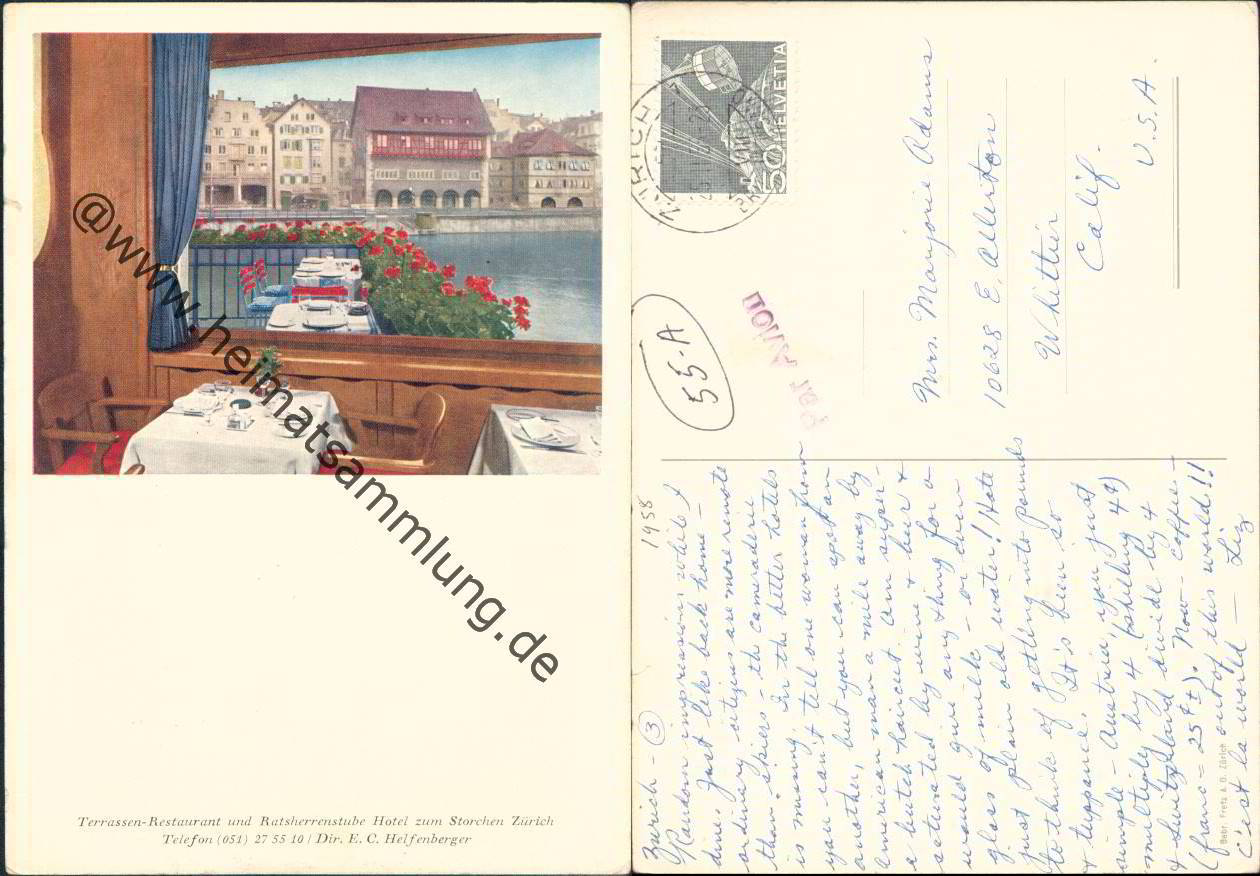 Terrassen-Restaurant und Ratsherrenstube Hotel zum Storchen Zürich
Telefon (051) 27 55 10 / Dir. E. C. Helfenberger
@www.heimatsammlung.de
HELVETIA
50
ZÜRICH
55-A
Par Avion
Mrs. Marjorie Adams
10628 E. Allerton
Whittier
Calif.
U.S.A.
1958
Zurich - ③
Random impressions while I
dine. Just like back home -
ordinary citizens are more remote
than skiers - the camaraderie
is missing. In the better hotels
you can't tell one woman from
another, but you can spot an
American man a mile away by
a butch haircut. Am super-
saturated by wine & beer &
would give any thing for a
glass of milk - or even
just plain old water! Hate
to think of getting into pounds
& tuppance. It's been so
simple - Austria, you just
multiply by 4 (shilling 4¢)
& Switzerland divide by 4
(franc = 25¢±). Now - Coffee -
out of this world!!
C'est la world - Liz
Gebr. Fretz A.G. Zürich